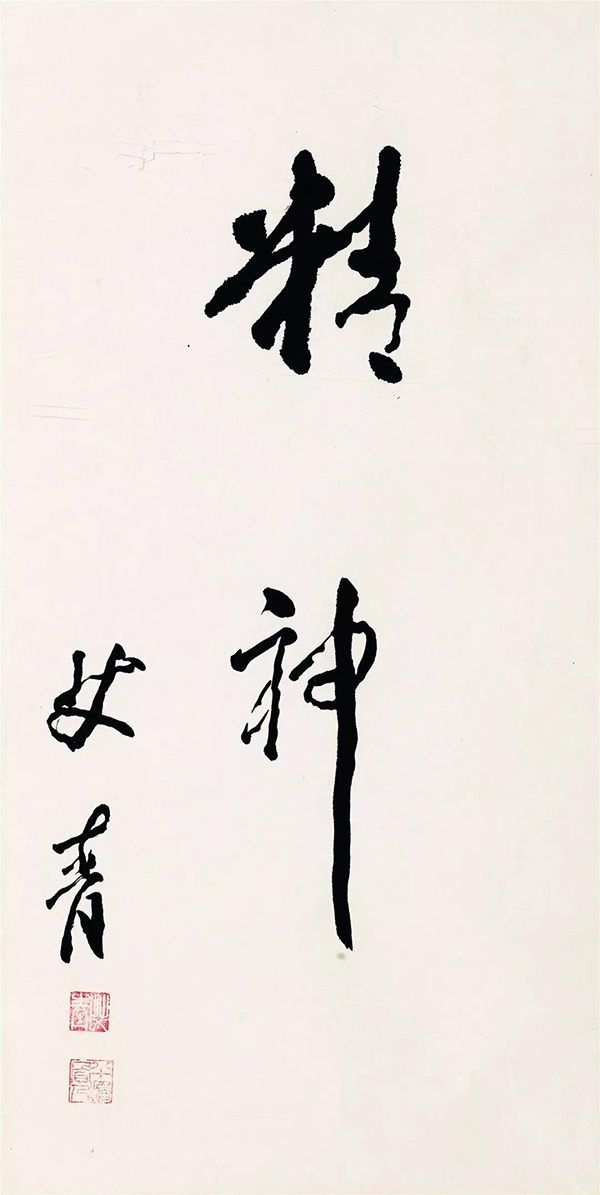 精神
艾青